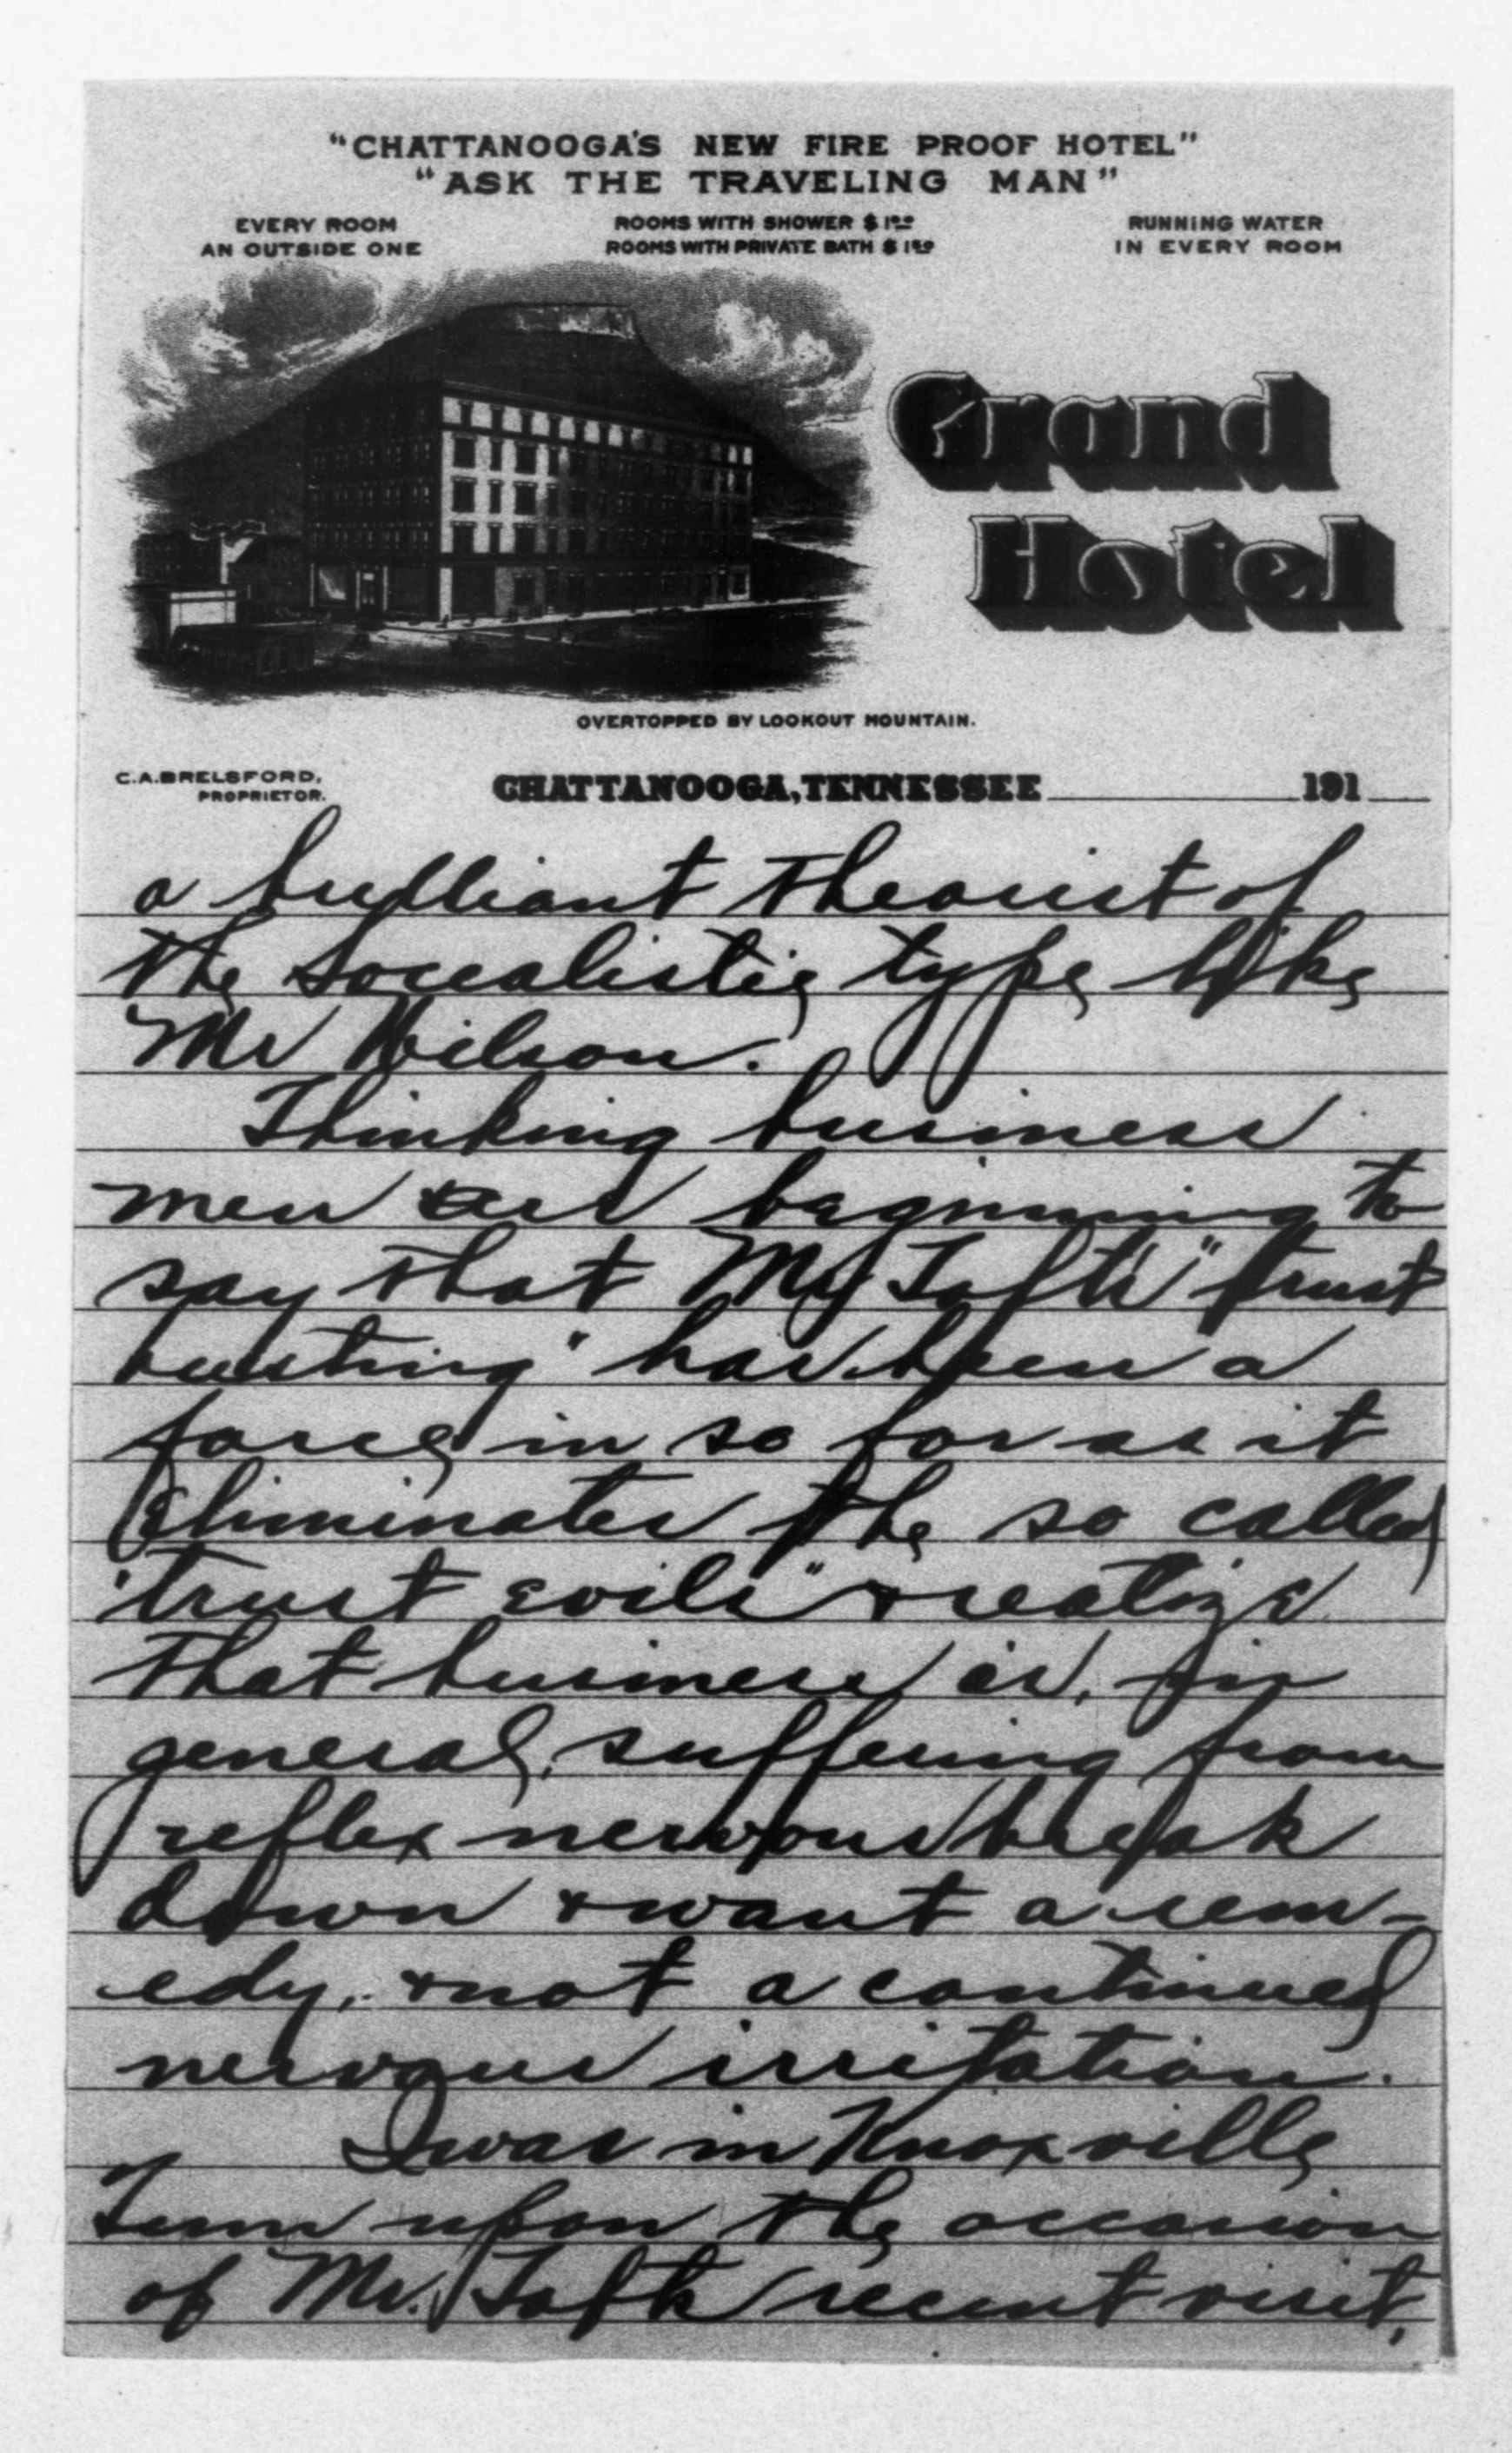 "CHATTANOOGA'S NEW FIRE PROOF HOTEL"
"ASK THE TRAVELING MAN"
EVERY ROOM
AN OUTSIDE ONE
ROOMS WITH SHOWER $1.00
ROOMS WITH PRIVATE BATH $1.50
RUNNING WATER
IN EVERY ROOM
Grand
Hotel
OVERTOPPED BY LOOKOUT MOUNTAIN.
C.A. BRELSFORD,
PROPRIETOR.
CHATTANOOGA, TENNESSEE 191
a brilliant theorist of
the Socealistic type like
Mr Wilson.
Thinking business
men are beginning to
say that Mr Taft's "trust
busting" has been a
farce in so far as it
eliminates the so called
"trust evils" & realize
that business is, in
general, suffering from
reflex nervous break
down & want a rem-
edy, & not a continued
nervous irritation.
I was in Knoxville
Tenn upon the occasion
of Mr. Tafts recent visit,